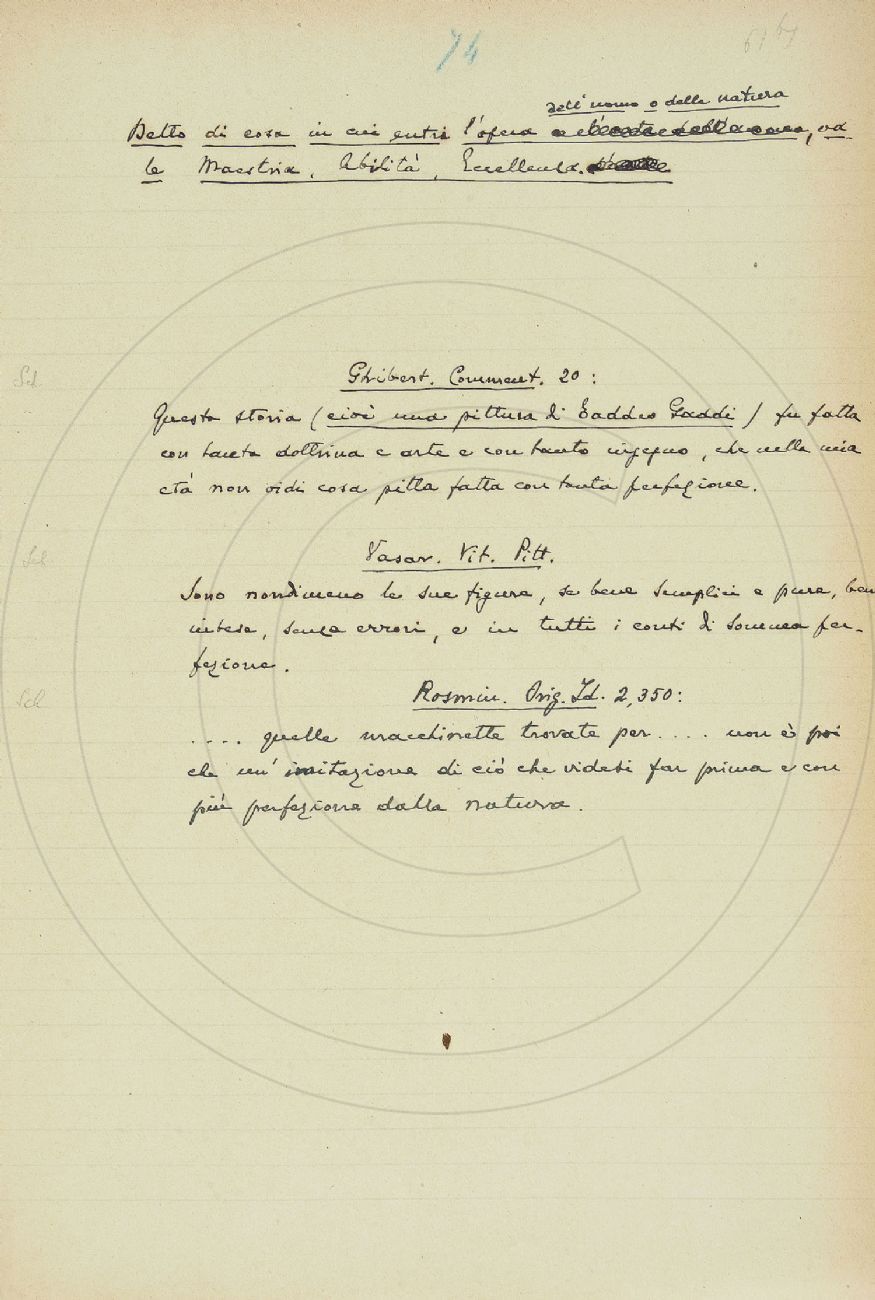 74
61 67
dell'uomo o della natura
Detto di cosa in cui entri l'opera, va
le Maestria, Abilità, Eccellenza.
Sch
Ghibert. Comment. 20:
Questa storia (cioè una pittura di Taddeo Gaddi) fu fatta
con tanta dottrina e arte e con tanto ingegno, che nella mia
età non vidi cosa pitta fatta con tanta perfezione.
Sch
Vasar. Vit. Pitt.
Sono nondimeno le sue figure, se bene semplici e pure, ben
intese, senza errori, e in tutti i conti di somma per-
fezione.
Sch
Rosmin. Orig. Id. 2,350:
.... quelle macchinette trovate per .... non è poi
che un'imitazione di ciò che videsi far prima e con
più perfezione dalla natura.